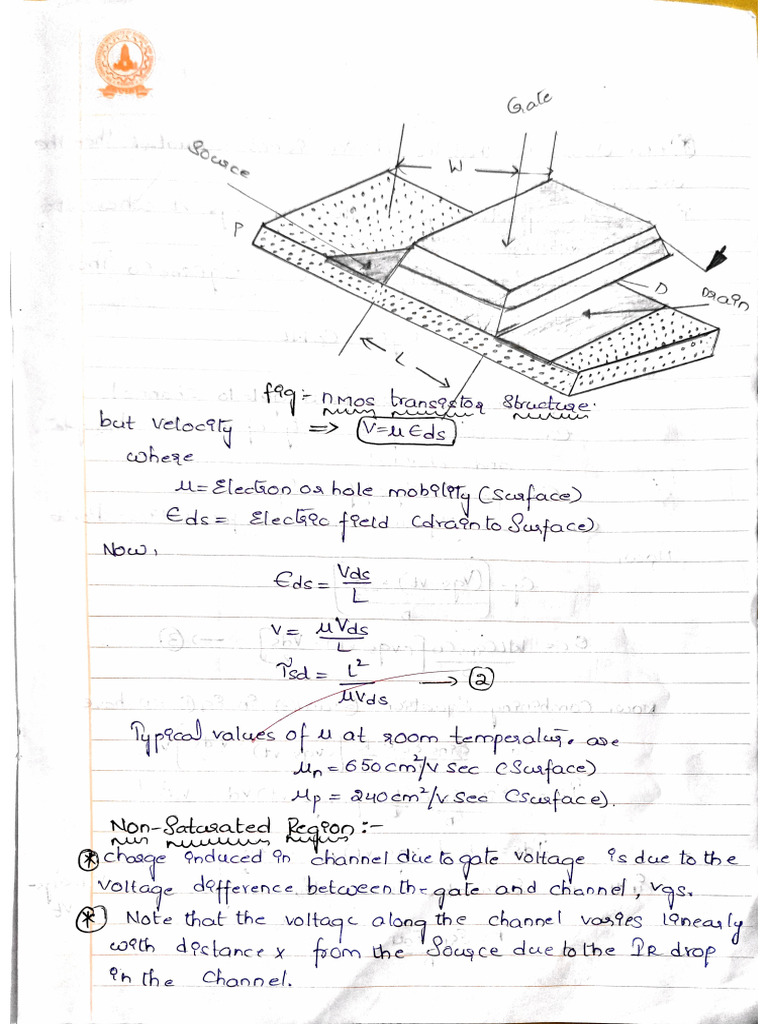 Gate
Source
W
P
D
Drain
L
fig:- nmos transistor Structure.
but velocity ⇒ V=μ Eds
where
μ= Electron or hole mobility (Surface)
Eds = Electric field (drain to Surface)
Now,
Eds = Vds/L
V = μVds/L
τsd = L²/μVds → ②
Typical values of μ at room temperature are
μn = 650 cm²/V sec (Surface)
μp = 240 cm²/V sec (Surface).
Non-Saturated Region :-
* charge induced in channel due to gate voltage is due to the
voltage difference between the gate and channel, vgs.
* Note that the voltage along the channel varies linearly
with distance x from the Source due to the IR drop
in the Channel.